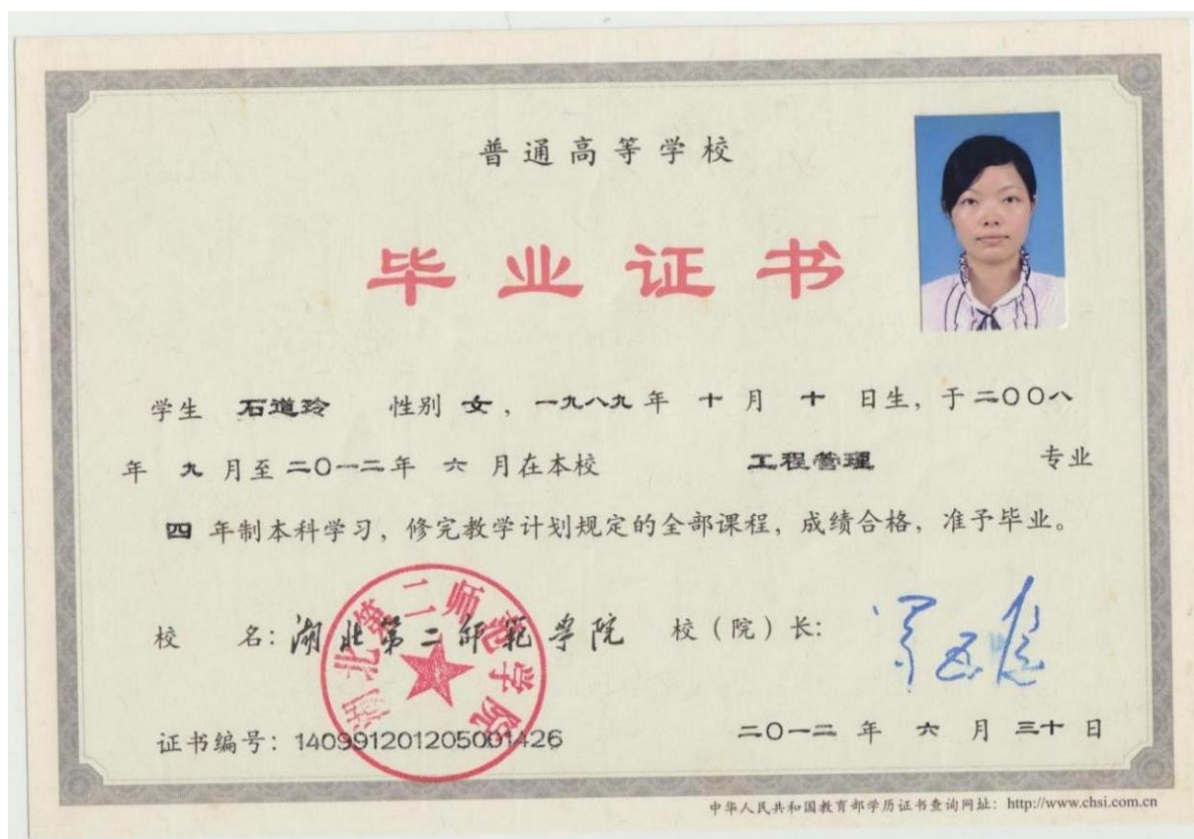 普通高等学校
毕业证书
学生 石道玲 性别 女，一九八九 年 十 月 十 日生，于二〇〇八
年 九 月至二〇一二年 六 月在本校 工程管理 专业
四 年制本科学习，修完教学计划规定的全部课程，成绩合格，准予毕业。
校 名：湖北第二师范学院 校（院）长：
湖北第二师范学院
证书编号：140991201205001426 二〇一二 年 六 月 三十 日
中华人民共和国教育部学历证书查询网址：http://www.chsi.com.cn